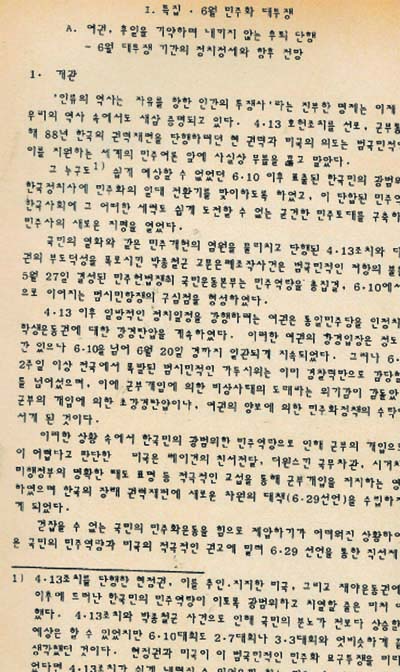 I. 특집 · 6월 민주화 대투쟁
A. 여권, 후일을 기약하며 내키지 않는 후퇴 단행
- 6월 대투쟁 기간의 정치정세와 향후 전망
1. 개관
'인류의 역사는 자유를 향한 인간의 투쟁사'라는 진부한 명제는 이제
우리의 역사 속에서도 새삼 증명되고 있다. 4·13 호헌조치를 선포, 군부통
해 88년 한국의 권력재편을 단행하려던 현 권력과 미국의 의도는 범국민적인
이를 지원하는 세계의 민주여론 앞에 사실상 무릎을 꿇고 말았다.
그 누구도1) 쉽게 예상할 수 없었던 6·10 이후 표출된 한국민의 광범위
한국정치사에 민주화의 일대 전환기를 맞이하도록 하였고, 이 단합된 민주역
한국사회에 그 어떠한 세력도 쉽게 도전할 수 없는 굳건한 민주토대를 구축하
민주사의 새로운 지평을 열었다.
국민의 열화와 같은 민주개헌의 염원을 물리치고 단행된 4·13조치와 더
권의 부도덕성을 폭로시킨 박종철군 고문은폐조작사건은 범국민적인 저항의 불을
5월 27일 결성된 민주헌법쟁취 국민운동본부는 민주역량을 총집결, 6·10에서
으로 이어지는 범시민항쟁의 구심점을 형성하였다.
4·13 이후 일방적인 정치일정을 강행하려는 여권은 통일민주당을 인정치
학생운동권에 대한 강경탄압을 계속하였다. 이러한 여권의 강경입장은 정도
간 있으나 6·10을 넘어 6월 20일 경까지 일관되게 지속되었다. 그러나 6·
2주일 이상 전국에서 폭발된 범시민적인 가두시위는 이미 경찰력만으로 감당할
를 넘어섰으며, 이에 군부개입에 의한 비상사태의 도래라는 위기감이 감돌았
군부의 개입에 의한 초강경탄압이냐, 여권의 양보에 의한 민주화정책의 수락
서게 된 것이다.
이러한 상황 속에서 한국민의 광범위한 민주역량으로 인해 군부의 개입으로
이 어렵다고 판단한 미국은 레이건의 친서전달, 더윈스키 국무차관, 시거차
미행정부의 명확한 태도 표명 등 적극적인 교섭을 통해 군부개입을 저지하는 영
하였으며 한국의 장래 권력재편에 새로운 차원의 대책(6·29선언)을 수립하지
게 되었다.
걷잡을 수 없는 국민의 민주화운동을 힘으로 제압하기가 어려워진 상황하에
은 국민의 민주역량과 미국의 적극적인 권고에 밀려 6·29 선언을 통한 직선제
1) 4·13조치를 단행한 현정권, 이를 추인·지지한 미국, 그리고 재야운동권에
이후에 드러난 한국민의 민주역량이 이토록 광범위하고 치열할 줄은 미처 예
했다. 4·13조치와 박종철군 사건으로 인해 국민의 분노가 전보다 상승한
예상은 할 수 있었지만 6·10대회도 2·7대회나 3·3대회와 엇비슷하게 끝
생각했던 것이다. 현정권과 미국이 이 범국민적인 민주화 요구투쟁을 미리
었다면 4·13조치가 쉽게 내려질 수